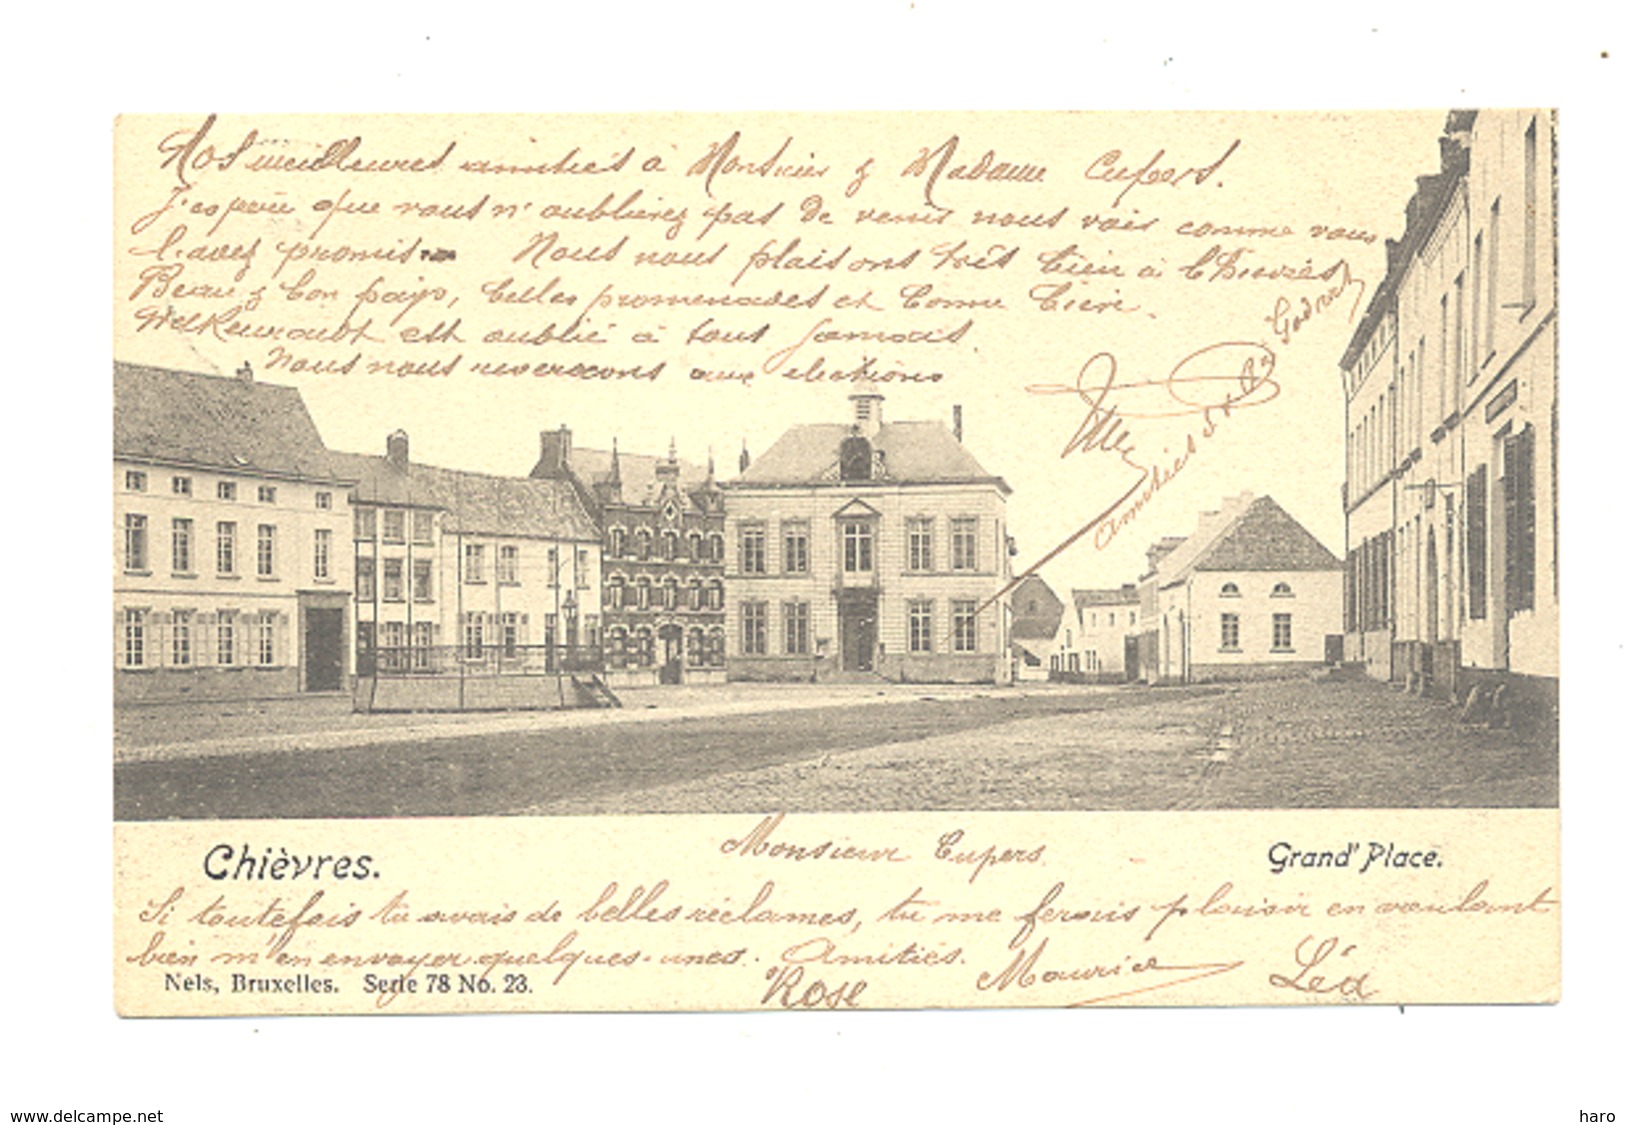 Nos meilleures amitiés à Monsieur & Madame Cupers.
J'espère que vous n'oublierez pas de venir nous voir comme vous
l'avez promis. Nous nous plaisons très bien à Chièvres
Beau & bon pays, belles promenades et bonne bière.
Welkenraedt est oublié à tout jamais.
Nous nous reverrons aux élections
Amitiés
Chièvres.
Monsieur Cupers.
Grand' Place.
Si toutefois tu avais de belles réclames, tu me ferais plaisir en voulant
bien m'en envoyer quelques-unes. Amitiés.
Rose Maurice Léa
Nels, Bruxelles. Serie 78 No. 23.
www.delcampe.net
haro